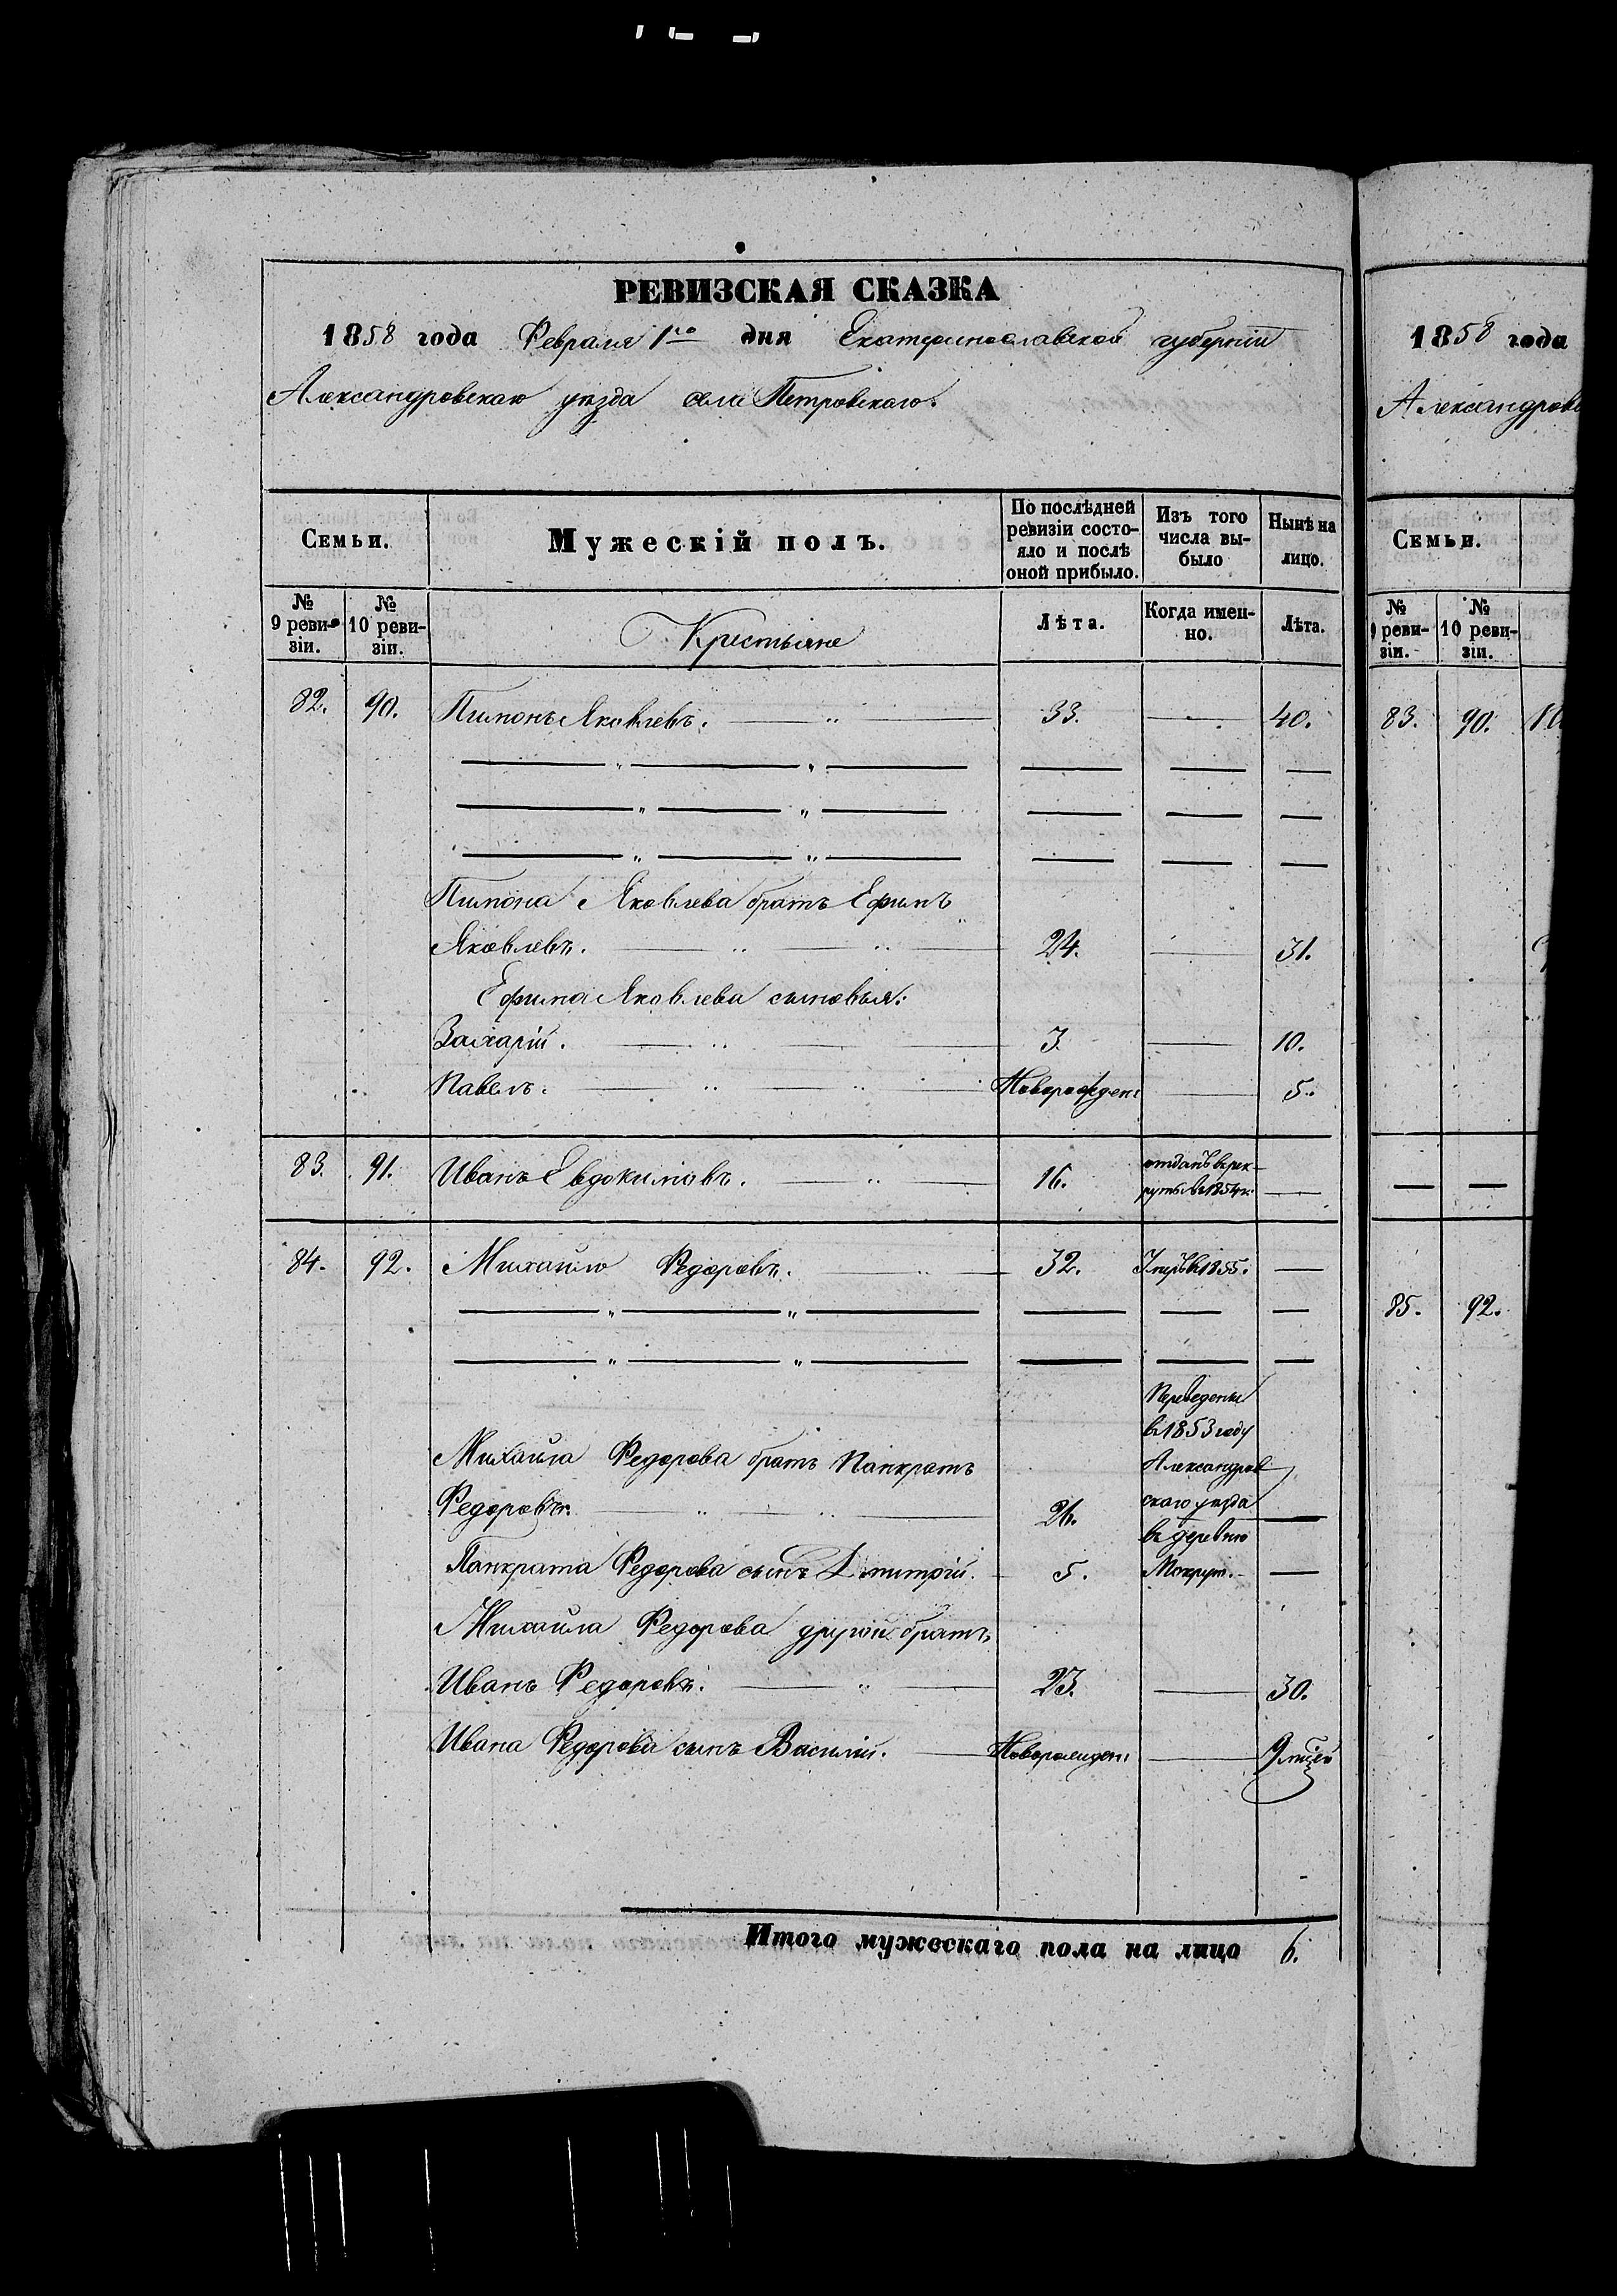 РЕВИЗСКАЯ СКАЗКА
1858 года Февраля 1го дня Екатеринославской губернiи
Александровскаго уѣзда села Петровскаго.
Семьи. Мужескій полъ. По послѣдней ревизіи состояло и послѣ оной прибыло. Изъ того числа выбыло Нынѣ на лицо.
№ 9 ревизіи. № 10 ревизіи. Крестьяне Лѣта. Когда именно. Лѣта.
82. 90. Пимонъ Яковлевъ. 33. 40.
Пимона Яковлева братъ Ефимъ
Яковлевъ. 24. 31.
Ефима Яковлева сыновья:
Захарій. 3. 10.
Павелъ. Новорожден: 5.
83. 91. Иванъ Евдокимовъ. 16. отданъ въ рек-
руты въ 1854 г.
84. 92. Михайло Федоровъ. 32. Умеръ въ 1855.
Переведены
въ 1853 году
Михайла Федорова братъ Панкратъ Александров
Федоровъ. 26. скаго уѣзда
въ деревню
Панкрата Федорова сынъ Дмитрій. 5.
Михайла Федорова другой братъ
Иванъ Федоровъ. 23. 30.
Ивана Федорова сынъ Василій. Новорожден: 9
Итого мужескаго пола на лицо 6.
1858 года
Александров
Семьи.
№ 9 ревизіи. № 10 ревизіи.
83. 90.
85. 92.